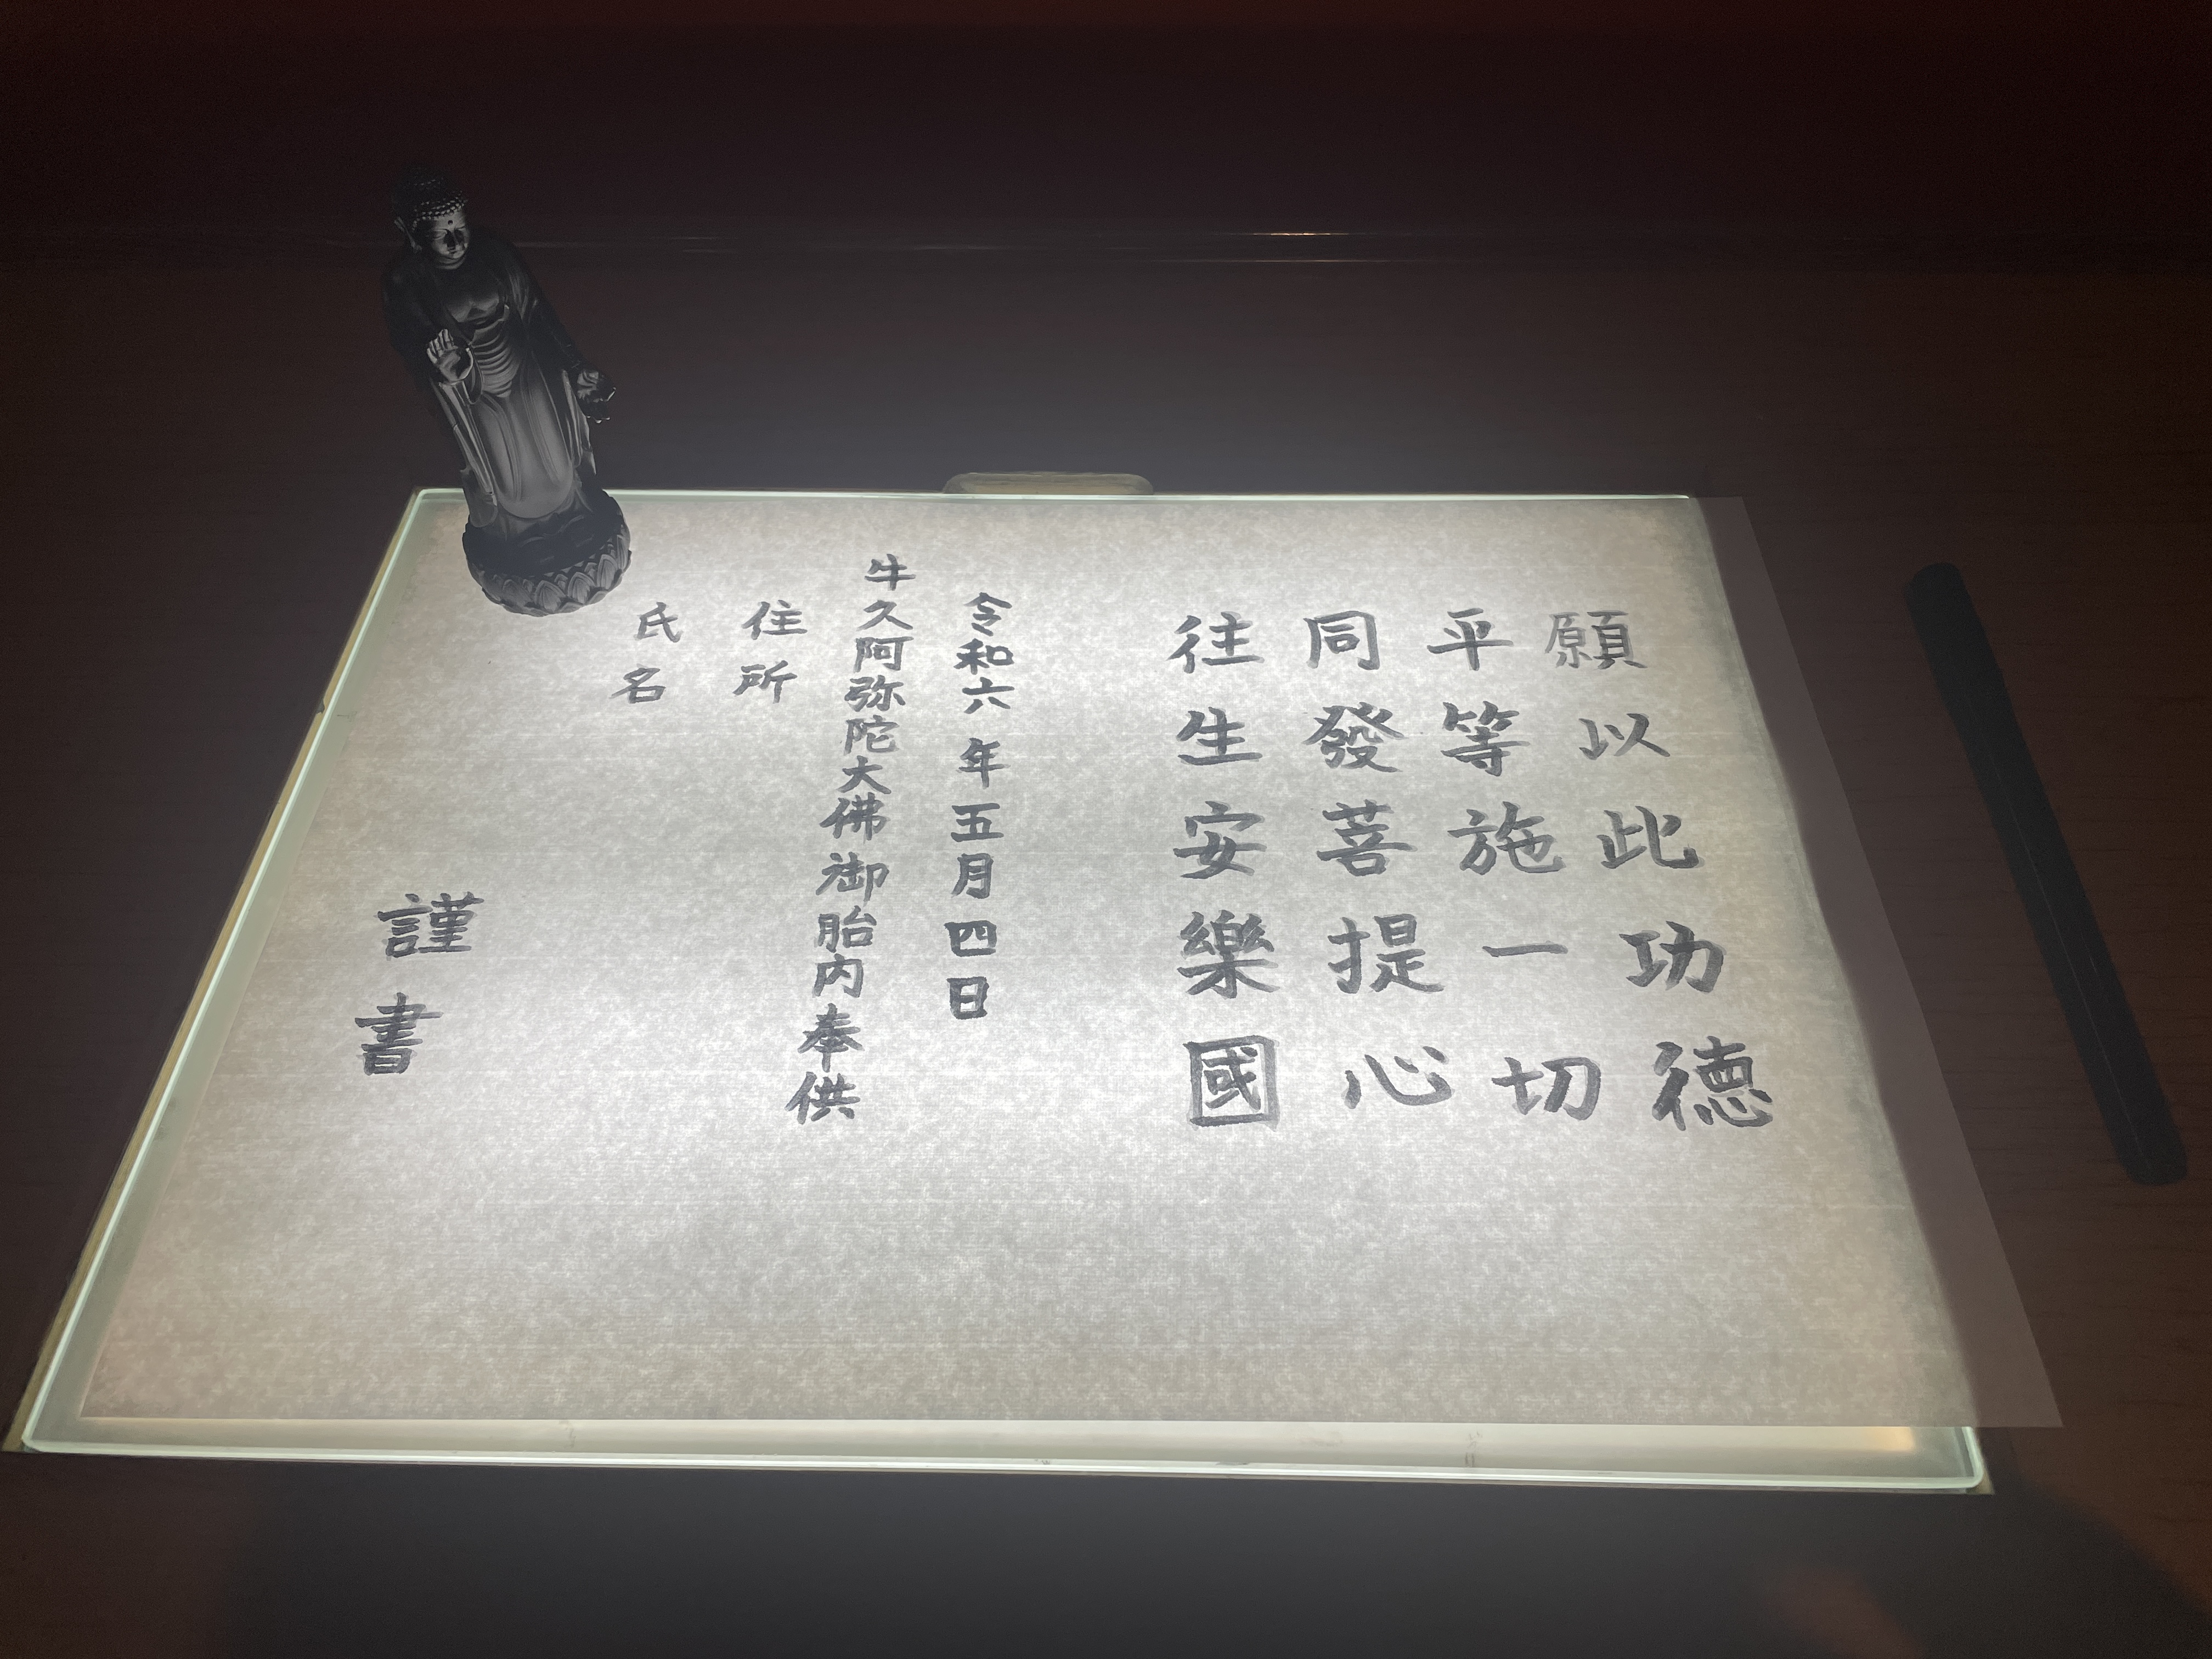 願以此功徳
平等施一切
同發菩提心
往生安樂國
令和六年五月四日
牛久阿弥陀大佛御胎内奉供
住所
氏名
謹書